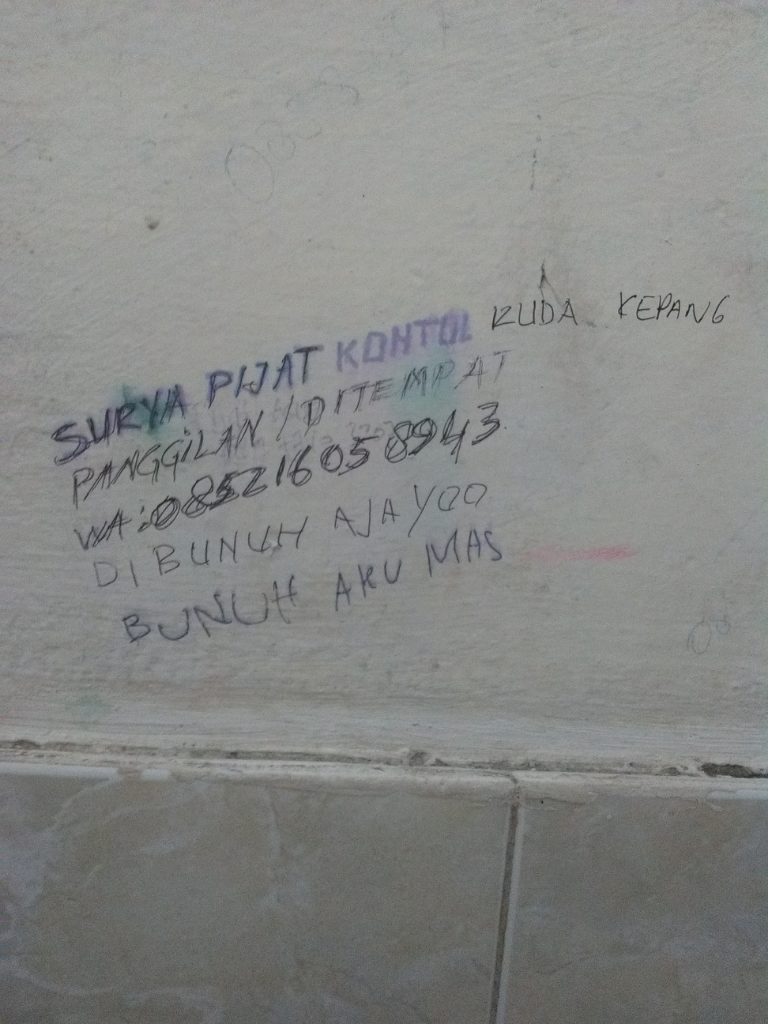 SURYA PIJAT KONTOL KUDA KEPANG
PANGGILAN / DITEMPAT
WA: 085216058943
DIBUNUH AJA YOO
BUNUH AKU MAS